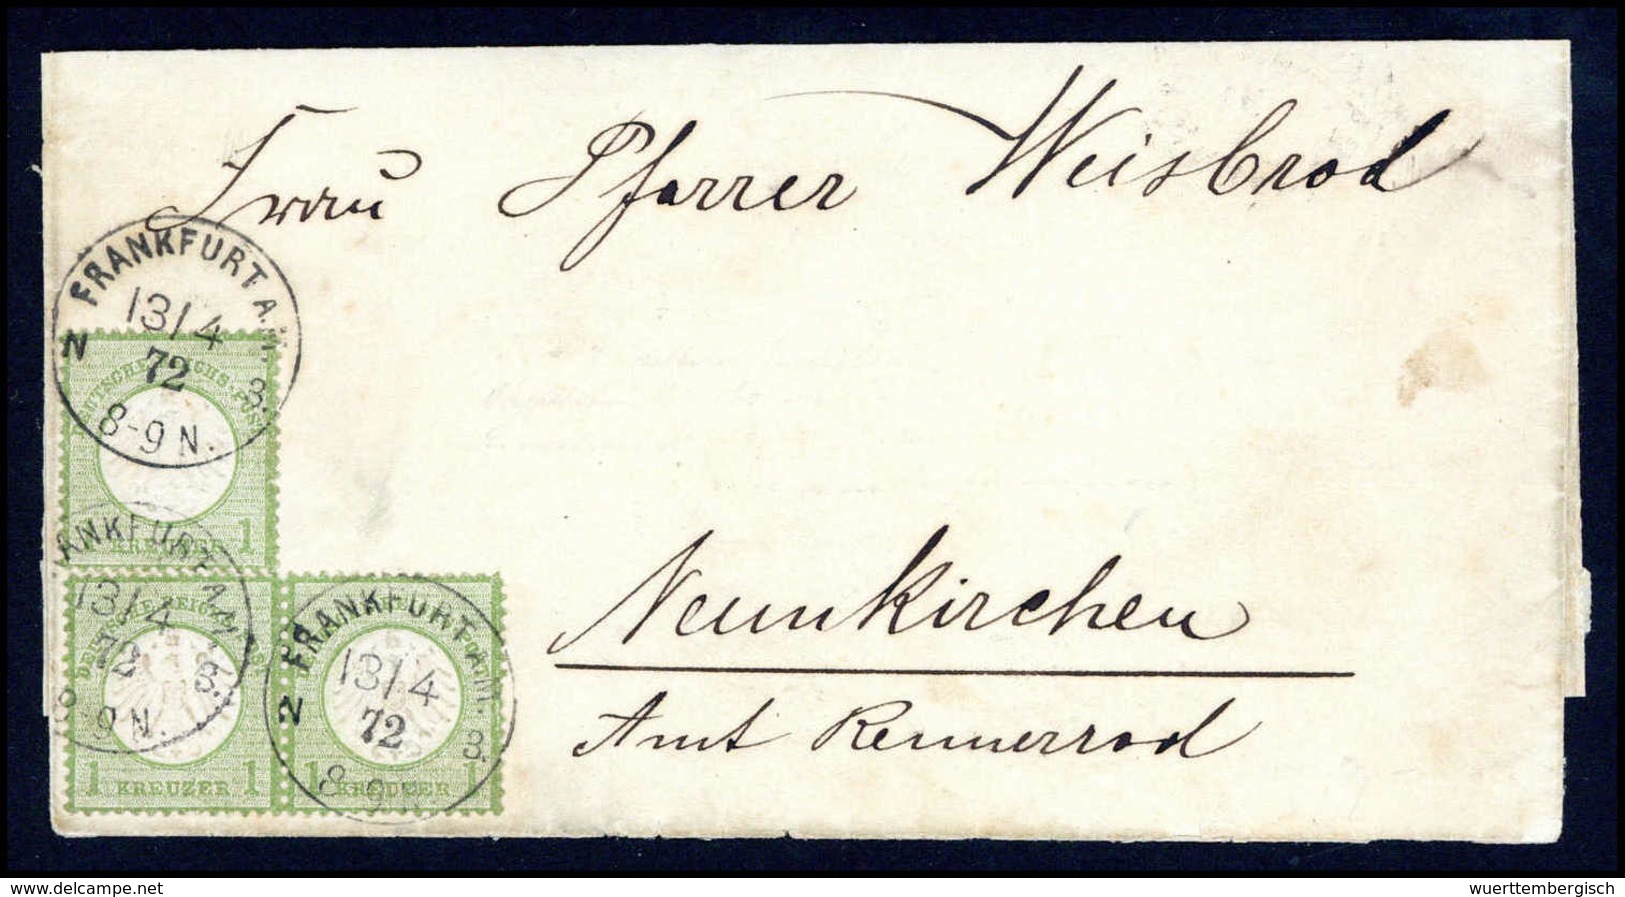 Frau Pfarrer Weisbrod
FRANKFURT A. M.
13/4
72
N 3.
8-9 N.
DEUTSCHE REICHS-POST
1
KREUZER
ANKFURT A. M.
13/4
72
3.
8-9 N.
1 KREUZER 1
FRANKFURT A. M.
13/4
72
2 3.
8-9 N.
1 KREUZER 1
Neunkirchen
Amt Rennerrod
www.delcampe.net
wuerttembergisch